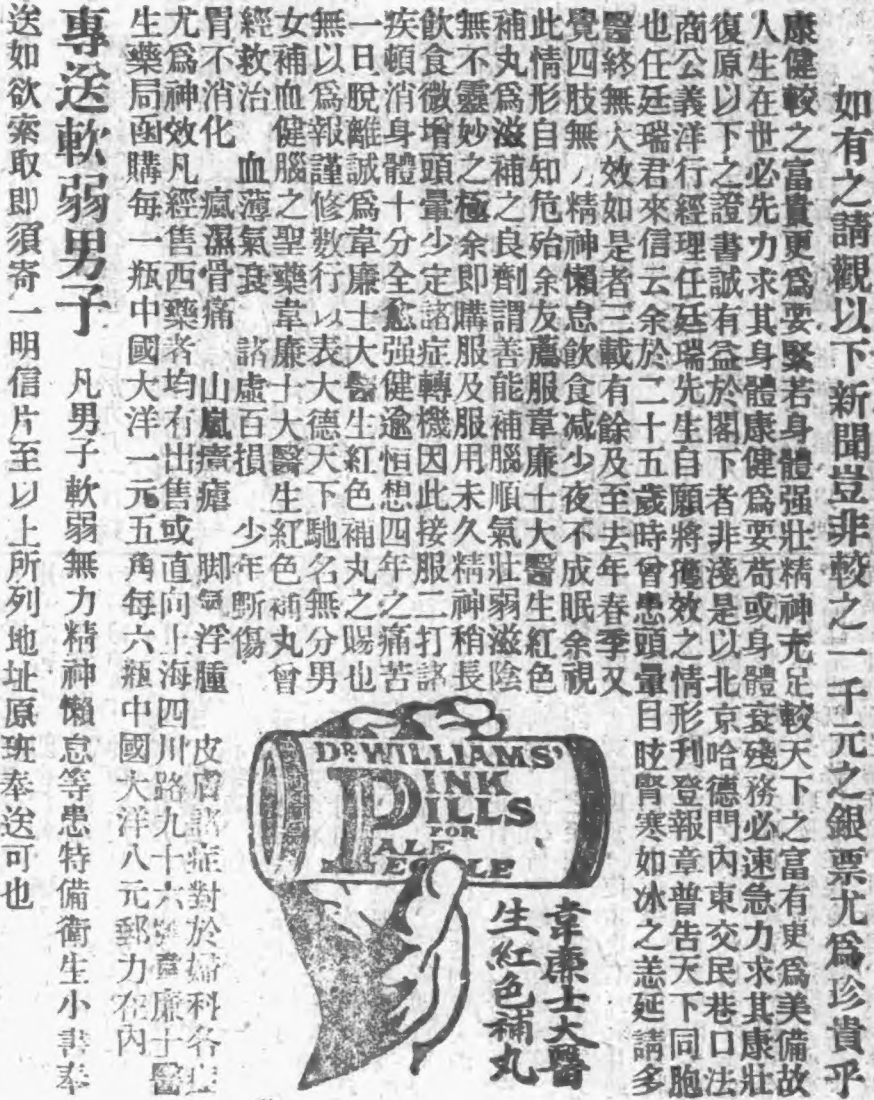 如有之請觀以下新聞豈非較之一千元之銀票尤爲珍貴乎
康健較之富貴更爲要緊若身體强壯精神充足較天下之富有更爲美備故
人生在世必先力求其身體康健爲要苟或身體衰殘務必速急力求其康壯
復原以下之證書誠有益於閣下者非淺是以北京哈德門內東交民巷口法
商公義洋行經理任廷瑞先生自願將獲效之情形刋登報章普告天下同胞
也任廷瑞君來信云余於二十五歲時曾患頭暈目眩腎寒如冰之恙延請多
醫終無大效如是者三載有餘及至去年春季又
覺四肢無力精神懶怠飲食減少夜不成眠余視
此情形自知危殆余友薦服韋廉士大醫生紅色
補丸爲滋補之良劑謂善能補腦順氣壯弱滋陰
無不靈妙之極余即購服及服用未久精神稍長
飲食微增頭暈少定諸症轉機因此接服二打諸
疾頓消身體十分全愈强健逾恒想四年之痛苦
一旦脫離誠爲韋廉士大醫生紅色補丸之賜也
無以爲報謹修數行以表大德天下馳名無分男
女補血健腦之聖藥韋廉士大醫生紅色補丸曾
經救治 血薄氣衰 諸虛百損 少年斵傷
胃不消化 瘋濕骨痛 山嵐瘴瘧 脚氣浮腫 皮膚諸症對於婦科各症
尤爲神效凡經售西藥者均有出售或直向上海四川路九十六號韋廉士醫
生藥局函購每一瓶中國大洋一元五角每六瓶中國大洋八元郵力在內
專送軟弱男子 凡男子軟弱無力精神懶怠等患特備衛生小書奉
送如欲索取即須寄一明信片至以上所列地址原班奉送可也
DR. WILLIAMS'
PINK
PILLS
FOR
PALE
PEOPLE
韋廉士大醫
生紅色補丸